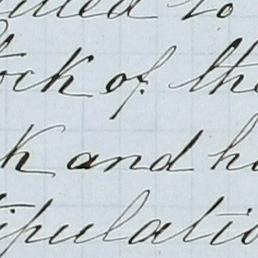 to
ock of the
k and h
ipulatio